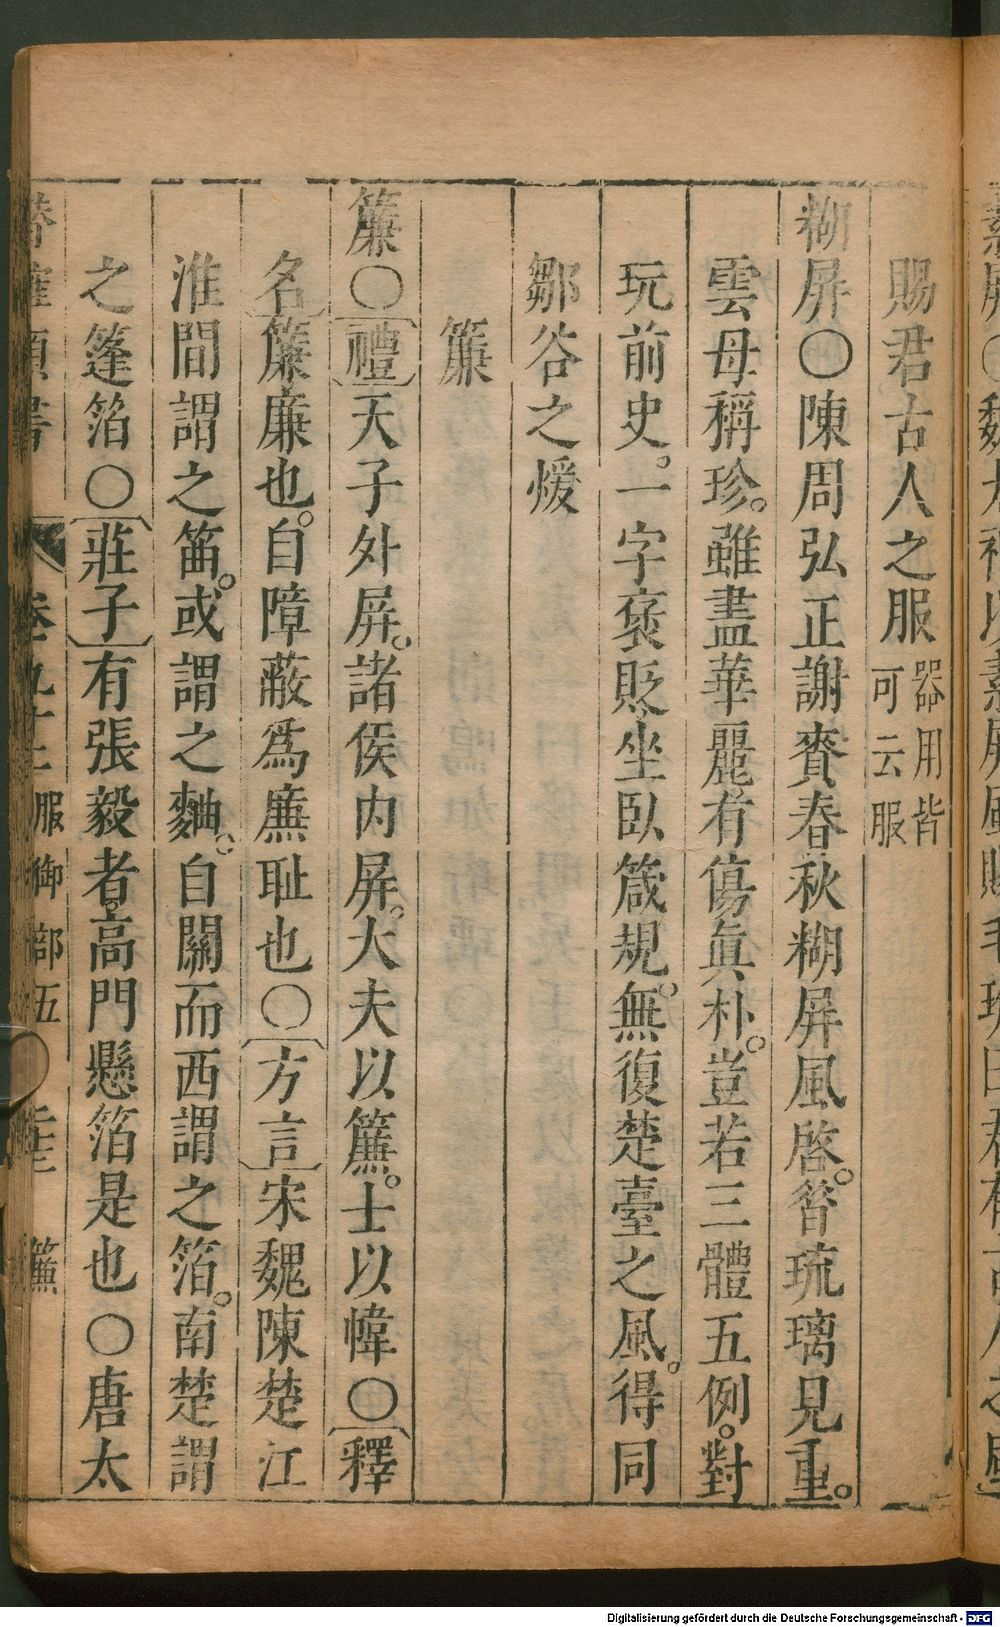 賜君古人之服器用皆可云服
糊屏〇陳周弘正謝賚春秋糊屏風啓。昔琉璃見重。
雲母稱珍。雖盡華麗。有傷眞朴。豈若三體五例。對
玩前史。一字褒貶。坐臥箴規。無復楚臺之風。得同
鄒谷之煖
簾
簾〇〔禮〕天子外屏。諸侯內屏。大夫以簾。士以幃〇〔釋
名〕簾廉也。自障蔽爲廉恥也〇〔方言〕宋魏陳楚江
淮間謂之笛。或謂之麯。自關而西謂之箔。南楚謂
之篷箔〇〔莊子〕有張毅者。高門懸箔是也〇唐太
卷九十二 服御部五 簾
Digitalisierung gefördert durch die Deutsche Forschungsgemeinschaft - DFG